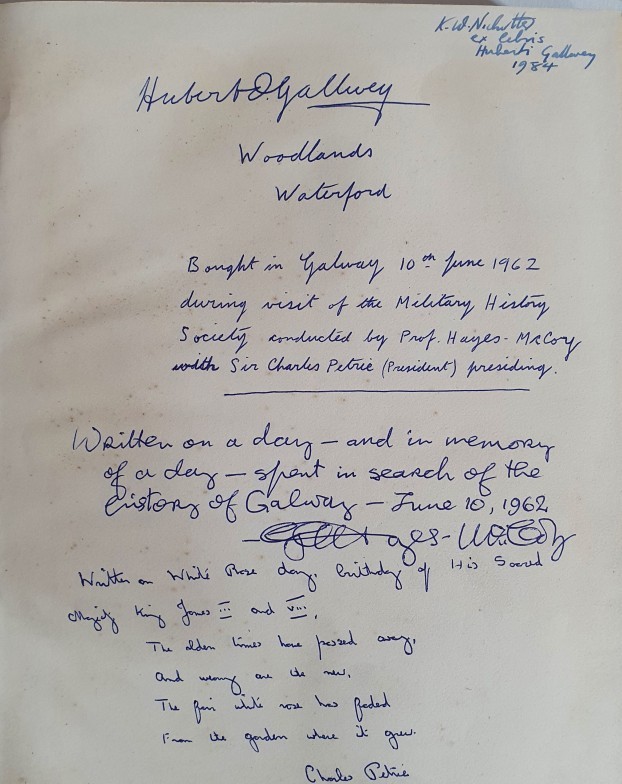 K.W. Nicholls
ex libris
Hubert Gallwey
1984
Hubert D. Gallwey
Woodlands
Waterford
Bought in Galway 10th June 1962
during visit of the Military History
Society conducted by Prof. Hayes-McCoy
with Sir Charles Petrie (President) presiding.
Written on a day – and in memory
of a day – spent in search of the
history of Galway – June 10, 1962
Hayes-McCoy
Written on White Rose day, birthday of His Sacred
Majesty King James III and VIII,
The olden times have passed away,
And weary are the new,
The fair white rose has faded
From the garden where it grew.
Charles Petrie